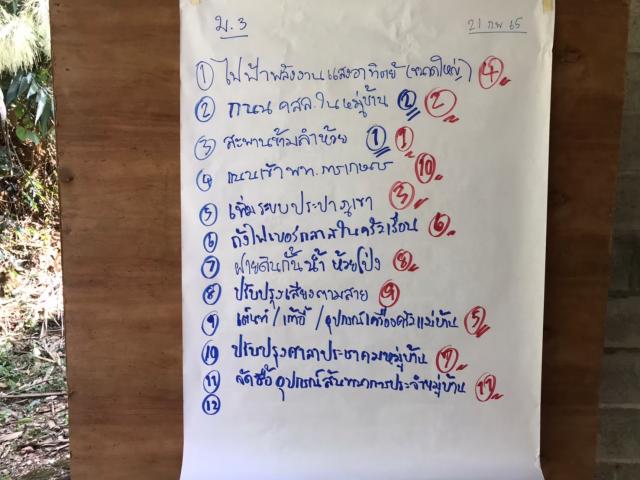 ม.3 21 กพ 65
① ไฟฟ้าพลังงานแสงอาทิตย์ (ขนาดใหญ่) ④
② ถนน คสล.ในหมู่บ้าน ② ②
③ สะพานข้ามลำห้วย ① ①
④ ถนนเข้าพท.การเกษตร ⑩
⑤ เพิ่มระบบประปาภูเขา ③
⑥ ถังไฟเบอร์กลาสในครัวเรือน ⑥
⑦ ฝายดินกั้นน้ำ ห้วยโป่ง ⑧
⑧ ปรับปรุงเสียงตามสาย ⑨
⑨ เต็นท์/เก้าอี้/อุปกรณ์เครื่องครัวแม่บ้าน ⑤
⑩ ปรับปรุงศาลาประชาคมหมู่บ้าน ⑦
⑪ จัดซื้ออุปกรณ์สันทนาการประจำหมู่บ้าน ⑪
⑫